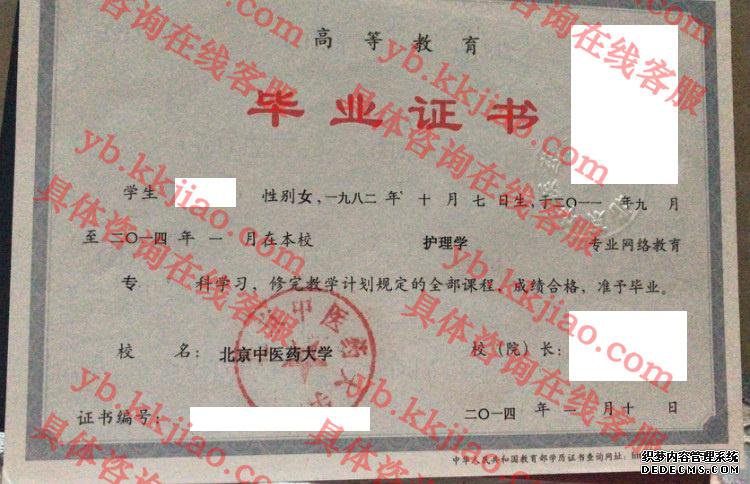 高等教育
毕业证书
学生 性别女，一九八二 年 十 月 七 日生，于二〇一一 年九 月
至 二〇一四 年 一 月在本校 护理学 专业网络教育
专 科学习，修完教学计划规定的全部课程，成绩合格，准予毕业。
校 名：北京中医药大学
校（院）长：
证书编号：
二〇一四 年 一 月 十 日
中华人民共和国教育部学历证书查询网址：
中医药大学
yb.kkjiao.com
具体咨询在线客服
yb.kkjiao.com
具体咨询在线客服
yb.kkjiao.com
具体咨询在线客服
yb.kkjiao.com
具体咨询在线客服
织梦内容管理系统
DEDECMS.COM